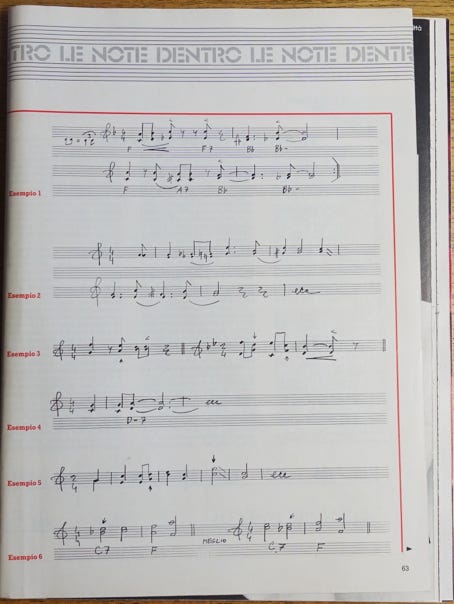 TRO LE NOTE DENTRO LE NOTE DENTR
F F7 Bb Bb-
Esempio 1
F A7 Bb Bb-
Esempio 2
ecc
Esempio 3
Esempio 4
D-7
ecc
Esempio 5
ecc
C7 F MEGLIO C7 F
Esempio 6
63